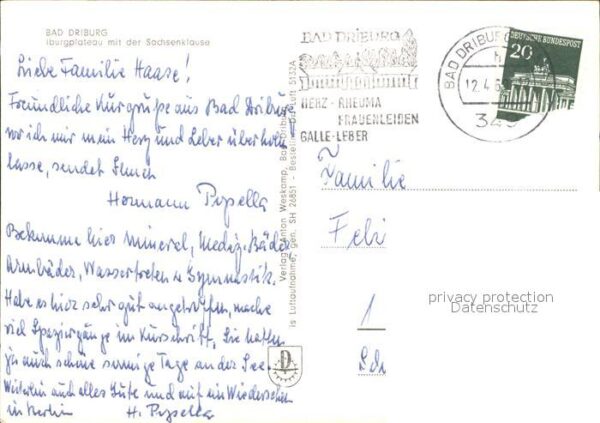 BAD DRIBURG
Iburgplateau mit der Sachsenklause
Liebe Familie Haase!
Freundliche Kurgrüße aus Bad Driburg
wo ich mir mein Herz und Leber überholen
lasse, sendet Euch
Hermann
Bekomme hier Mineral, Mediz. Bäder
Armbäder, Wassertreten u Gymnastik.
Habe es hier sehr gut angetroffen, mache
viel Spaziergänge im Kurschritt, Sie hatten
ja auch schöne sonnige Tage an der See.
Weiterhin auch alles Gute und auf ein Wiedersehen
in Berlin H.
Verlag Anton Weskamp, Bad Driburg
Luftaufnahme, gen. SH 26851 - Bestell 5132A
BAD DRIBURG
HERZ - RHEUMA
FRAUENLEIDEN
GALLE-LEBER
BAD DRIBURG
12.4.6
DEUTSCHE BUNDESPOST
20
Familie
1
privacy protection
Datenschutz